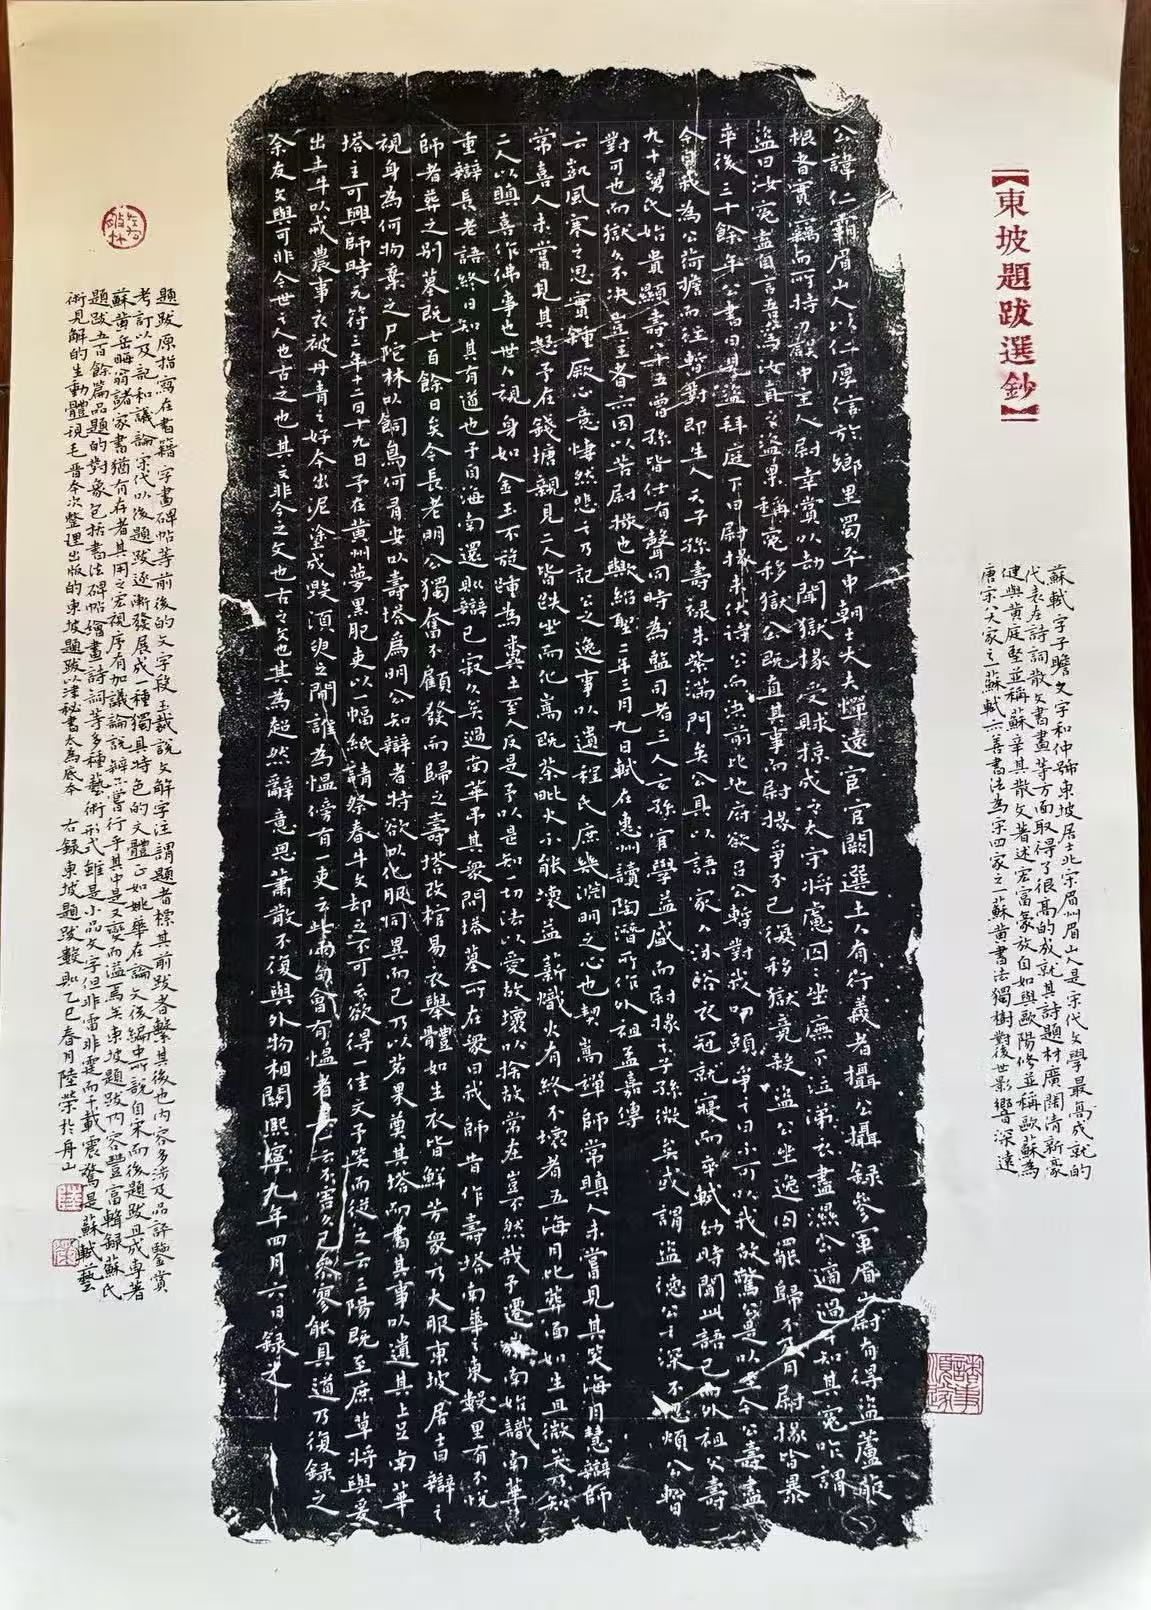 【東坡題跋選鈔】
蘇軾字子瞻又字和仲號東坡居士北宗眉州眉山人是宋代文學最高成就的
代表在詩詞散文書畫等方面取得了很高的成就其詩題材廣闊清新豪
健與黃庭堅並稱蘇辛其散文著述宏富豪放自如與歐陽修並稱歐蘇為
唐宋八大家之一蘇軾亦善書法為宗四家之一蘇黃書法獨樹對後世影響深遠
諸事順遂
公諱仁霸眉山人以仁厚信於鄉里蜀平中朝士大夫憚遠官官闕選土人有行義者攝公攝錄參軍眉山尉有得盜蘆菔
根者實竊而所持刃誤中主人尉幸賞以劫聞獄掾受賕掠成之太守將慮囚坐廡下泣涕衣盡濕公適過之知其冤咋謂
盜曰汝冤盍自言吾為汝直之盜果稱冤移獄公既直其事而尉掾爭不已復移獄竟殺盜公坐逸囚罷歸不及月尉掾皆暴
卒後三十餘年公晝日見盜拜庭下曰尉掾未伏待公而決前此地府欲召公暫對我叩頭爭之曰不可以我故驚公是以至今公壽盡
今日我為公荷擔而往暫對即生人天子孫壽祿朱紫滿門矣公具以語家人沐浴衣冠就寢而卒軾幼時聞此語已而外祖父壽
九十舅氏始貴顯壽八十五曾孫皆仕有聲同時為監司者三人玄孫宦學益盛而尉掾之子孫微矣或謂盜德公之深不忍煩公暫
對可也而獄久不決豈主者亦因以苦尉掾也歟紹聖二年三月九日軾在惠州讀陶潛所作外祖孟嘉傳
云凱風寒之思實鍾厥心意悽然悲之乃記公之逸事以遺程氏庶幾淵明之心也契嵩禪師常瞋人未嘗見其笑海月慧辯師
常喜人未嘗見其怒予在錢塘親見二人皆趺坐而化嵩既荼毗火不能壞益薪熾火有終不壞者五海月比葬面如生且微笑乃知
二人以瞋喜作佛事也世人視身如金玉不旋踵為糞土至人反是予以是知一切法以愛故壞以捨故常在豈不然哉予遷嶺南始識南華
重辯長老語終日知其有道也予自海南還則辯已寂久矣過南華弔其衆問塔墓所在衆曰我師昔作壽塔南華之東數里有不悅
師者葬之别墓既七百餘日矣今長老明公獨奮不顧發而歸之壽塔改棺易衣舉體如生衣皆鮮芳衆乃大服東坡居士曰辯之
視身為何物棄之尸陀林以飼鳥何有安以壽塔為明公知辯者特欲以化服同異而已乃以茗果奠其塔而書其事以遺其上足南華
塔主可興師時元符三年十二月十九日予在黃州夢黑肥吏以一幅紙請祭春牛文却之不可云欲得一佳文予笑而從之云三陽既至庶草將興爰
出土牛以戒農事衣被丹青之好本出泥塗成毀須臾之間誰為愠傍有一吏云此兩句會有愠者其一云不害久已參寥能具道乃復錄之
余友文與可非今世之人也古之也其文非今之文也古之文也其為超然辭意思蕭散不復與外物相關熙寧九年四月六日錄之
題跋原指寫在書籍字畫碑帖等前後的文字段玉裁說文解字注謂題者標其前跋者繫其後也內容多涉及品評鑒賞
考訂以及記和議論宗代以後題跋逐漸發展成一種獨具特色的文體正如姚華在論文後編中所說自宋而後題跋且成專著
蘇黃岳晦翁諸家書猶有存者其用之宏視序有加議論說辨亦嘗行乎其中是又變而溢焉矣東坡題跋內容豐富輯録蘇氏
題跋五百餘篇品題的對象包括書法碑帖繪畫詩詞等多種藝術形式雖是小品文字但非雷非霆而千載震驚是蘇軾藝
術見解的生動體現毛晉本次整理出版的東坡題跋以津秘書本為底本　右録東坡題跋數則乙巳春月陸榮於舟山